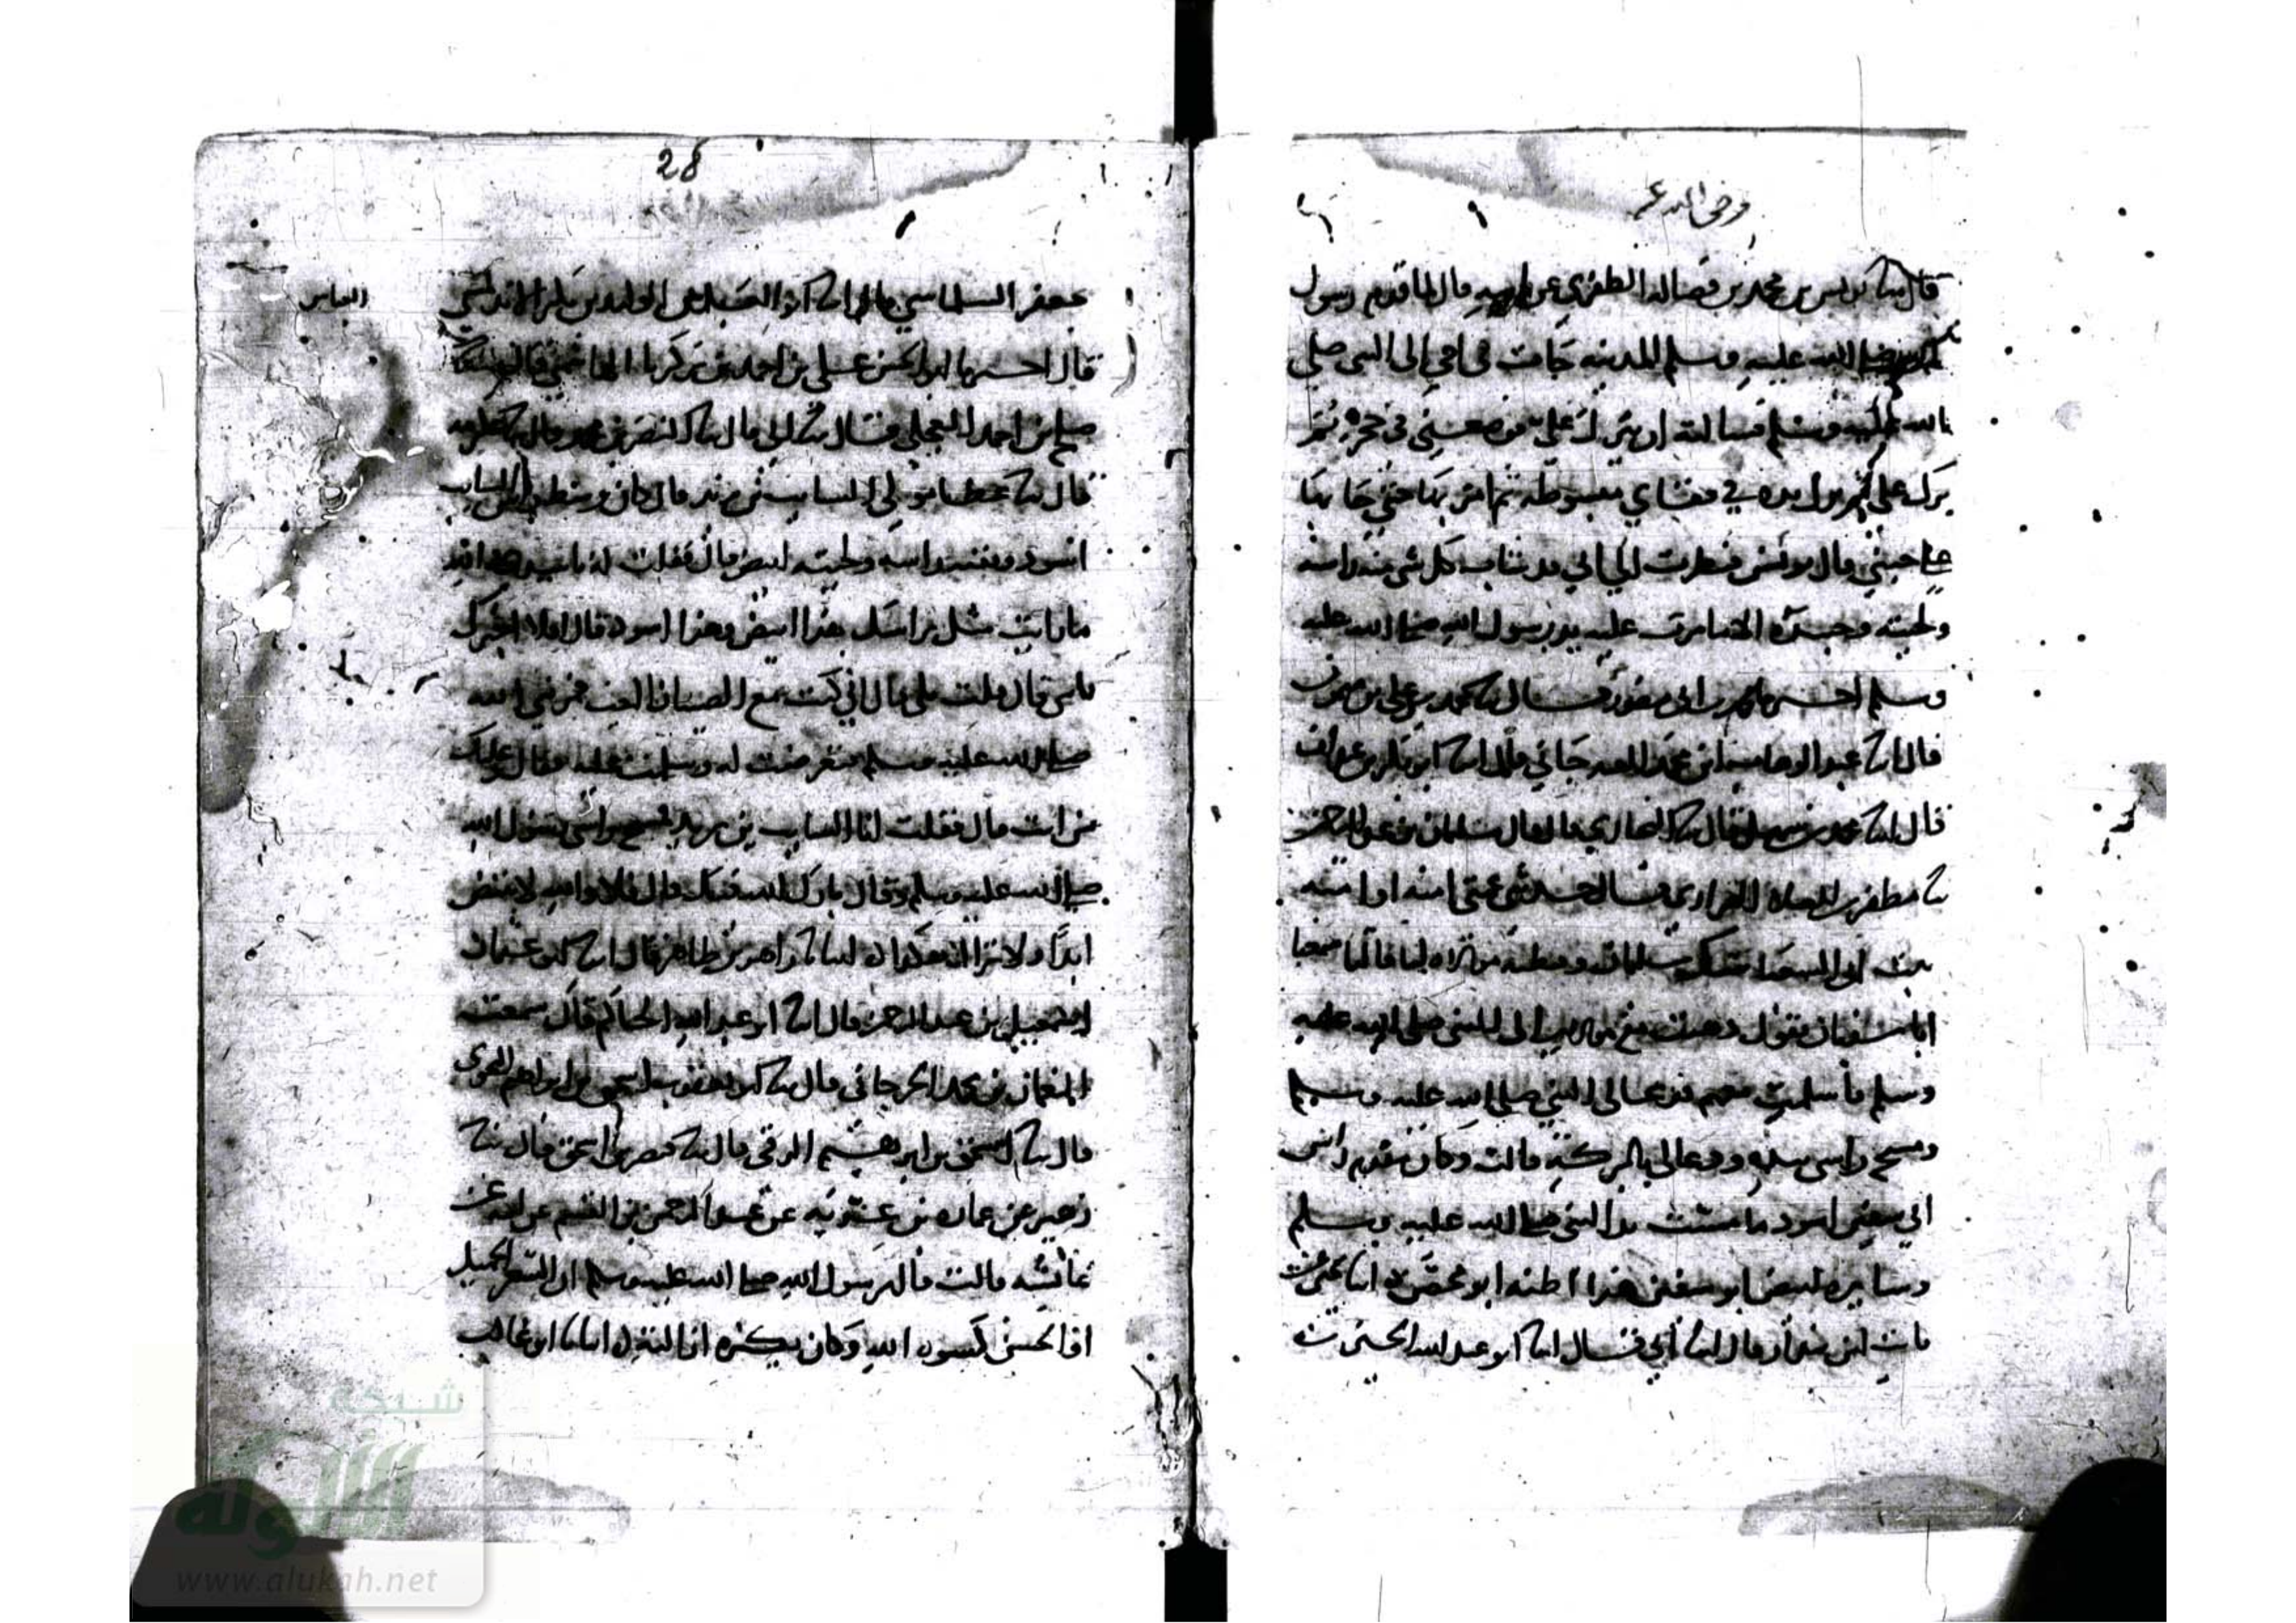 رضى الله عنه
قال ثنا يونس بن محمد بن فضالة الظفري عن ابيه قال لما قدم رسول
الله صلى الله عليه وسلم المدينه جات بى امي الى النبى صلى
الله عليه وسلم فسالته ان يبرك علي فوضعني فى حجره ثم
برك على يده في قفاي مبسوطه ثم امر بها حتى جا بها
جبيني قال يونس فنظرت الي ابي قد شاب كل شى منه راسه
ولحيته وجسده الا ما مرت عليه يد رسول الله صلى الله عليه
وسلم محمد بن ابى منصور قال محمد بن علي بن ميمون
قال انا عبد الوهاب ابن محمد قال انا ابو بكر بن عبدان
قال انا محمد بن سهل قال ثنا البخاري قال قال سليمان بن عبد الرحمن
ثنا مطر بن العلاء الفزاري قال حدثتني عمتى امنه او اميه
بنت ابى الشعثا وقطبه مولاه لنا قالتا سمعنا
ابا سفيان يقول ذهبت مع موالى الى النبى صلى الله عليه
وسلم فأسلمت معهم فدعا لى النبي صلى الله عليه وسلم
ومسح راسى بيده ودعا لى بالبركة قالت وكان مقدم راس
ابي سفين اسود ما مسته يد النبى صلى الله عليه وسلم
وسايره ابيض ابو سفين هذا اظنه ابو انبا يحيى بن
ثابت ابن بندار قال انبا أبي قال انبا ابو عبد الله الحسين بن
28
جعفر السلماسي قال انا ابو العباس الوليد بن بكر الاندلسي
العباس
قال اخبرنا ابو الحسن علي بن احمد بن زكريا الهاشمي قال
صلح بن احمد العجلي قال ثنا ابى قال ثنا النضر بن محمد قال ثنا عكرمه
قال ثنا عطا مولى السايب بن يزيد قال كان وسط راس السايب
اسود وبقيه راسه ولحيته ابيض قال فقلت له يا سيدي والله
ما رايت مثل راسك هذا ابيض وهذا اسود قال افلا اخبرك
يابني قال قلت بلى قال اني كنت مع الصبيان العب فمر بي رسول الله
صلى الله عليه وسلم فتعرضت له وسلمت عليه فقال وعليك
من انت قال فقلت انا السايب بن يزيد فمسح راسى رسول الله
صلى الله عليه وسلم وقال بارك الله فيك قال فلا والله لا يبيض
ابدًا ولا يزال هكذا انبانا زاهر بن طاهر قال انا ابو عثمان
اسمعيل بن عبد الرحمن قال انا ابو عبد الله الحاكم قال سمعت
النعمان بن محمد الجرجاني قال ثنا ابو يعقوب اسحق بن ابراهيم
قال ثنا اسحق بن ابرهيم الرقى قال ثنا ابحق قال ثنا
زهير عن عماره بن غزيه عن عبد الرحمن بن القسم عن ابيه عن
عائشه قالت قال رسول الله صلى الله عليه وسلم ان الشعر الجميل
الله وكان يكره انبانا ابو غالب
شبكة
الألوكة
www.alukah.net